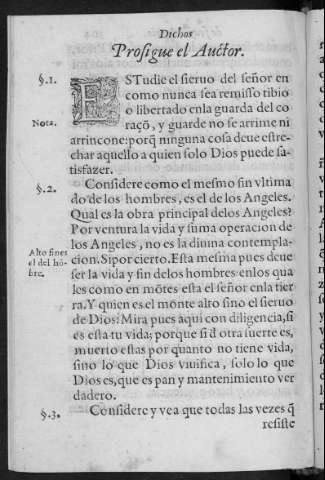 Dichos
Prosigue el Auctor.
§.1. EStudie el sieruo del señor en
como nunca sea remisso tibio
o libertado enla guarda del co-
Nota. raçõ, y guarde no se arrime ni
arrincone: porq̃ ninguna cosa deue estre-
char aquello a quien solo Dios puede sa-
tisfazer.
§.2. Considere como el mesmo fin vltima
do de los hombres, es el de los Angeles.
Qual es la obra principal delos Angeles?
Por ventura la vida y suma operacion de
los Angeles, no es la diuina contempla-
Alto fines cion. Si por cierto. Esta mesma pues deue
el del hõ- ser la vida y fin delos hombres enlos qua
bre. les como en mõtes esta el señor enla tier
ra. Y quien es el monte alto sino el sieruo
de Dios: Mira pues aqui con diligencia, si
es esta tu vida; porque si d̃ otra suerte es,
muerto estas por quanto no tiene vida,
sino lo que Dios viuifica, solo lo que
Dios es, que es pan y mantenimiento ver
dadero.
§.3. Considere y vea que todas las vezes q̃
resiste